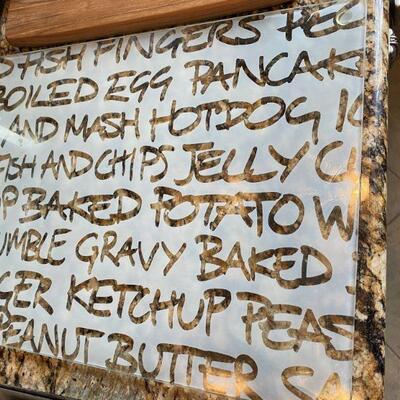 FISH FINGERS
BOILED EGG PANCAK
AND MASH HOTDOG
FISH AND CHIPS JELLY
BAKED POTATO W
UMBLE GRAVY BAKED
GER KETCHUP PEAS
PEANUT BUTTER SA